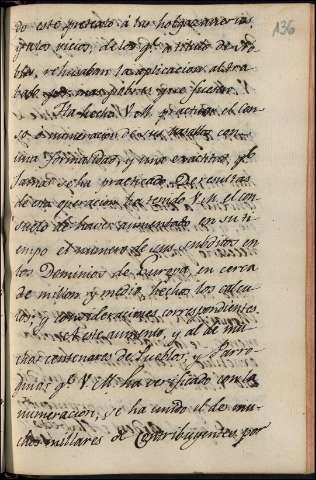 136
do este pretexto á las holgazanerias
y a los vicios, de los q.e a titulo de No
bles, rehusaban la aplicacion al tra
bajo por mas pobres que fuesen.
Ha hecho V. M. practicar el Cen
so ó numeracion de sus Vasallos con
una formalidad, y una exactitud, q.e
jamas se ha practicado. De resultas
de esta operacion ha tenido V. M. el con
suelo de haver aumentado en su ti
empo el número de sus subditos en
los Dominios de Europa en cerca
de millon y medio, hechos los calcu
los, y consideraciones correspondientes.
A este aumento, y al de mu
chos centenares de Pueblos, y Parro
quias, q.e V. M. ha verificado con la
numeración, se ha unido el de mu
chos millares de Contribuyentes por